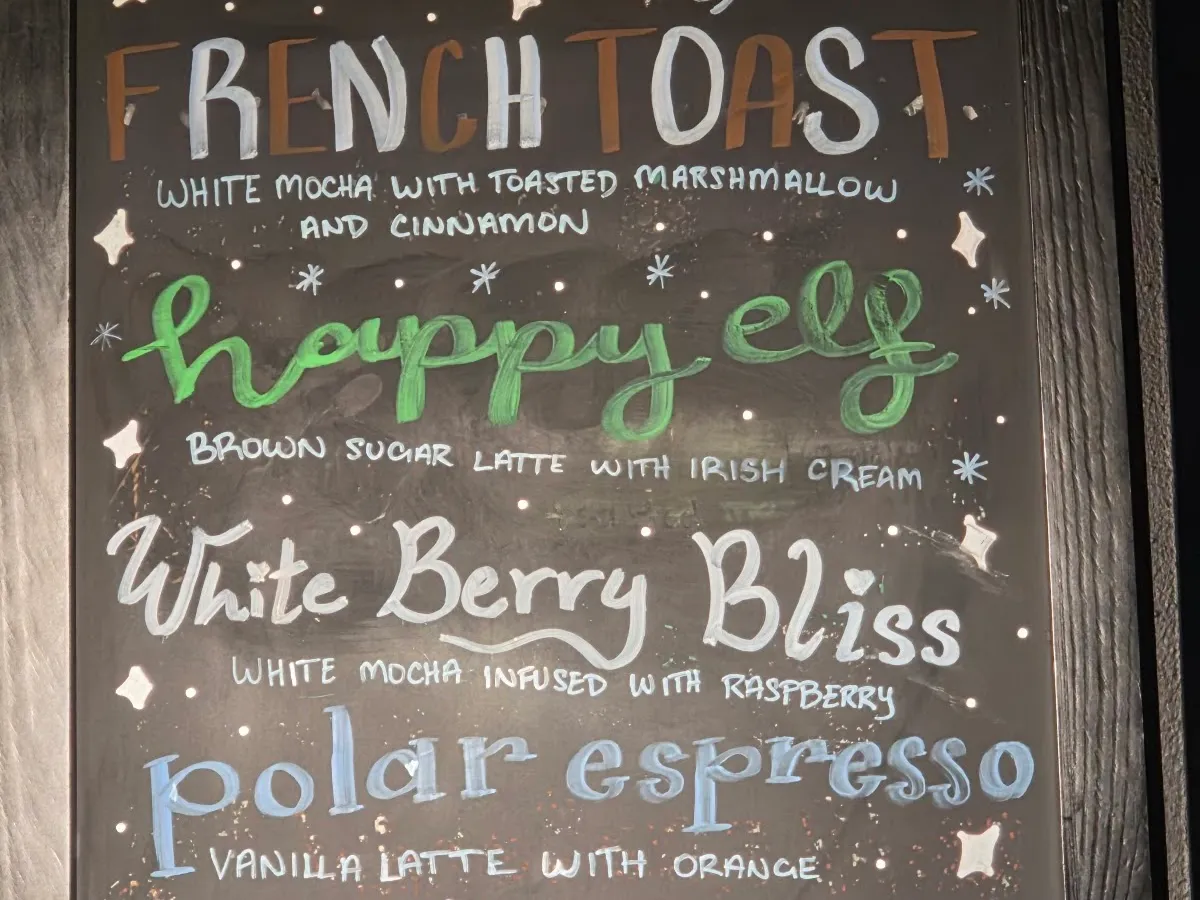 FRENCH TOAST
WHITE MOCHA WITH TOASTED MARSHMALLOW
AND CINNAMON
happy elf
BROWN SUGAR LATTE WITH IRISH CREAM
White Berry Bliss
WHITE MOCHA INFUSED WITH RASPBERRY
polar espresso
VANILLA LATTE WITH ORANGE